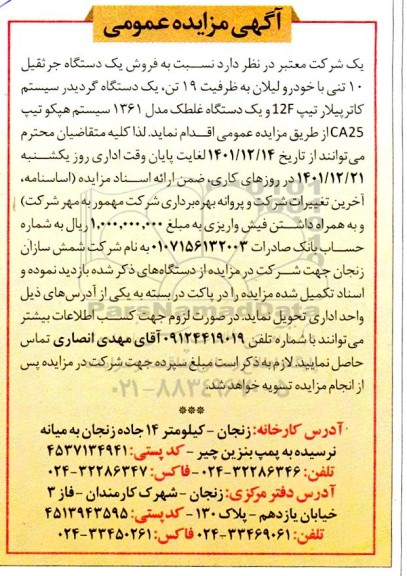 آگهی مزایده عمومی
یک شرکت معتبر در نظر دارد نسبت به فروش یک دستگاه جرثقیل
۱۰ تنی با خودرو لیلان به ظرفیت ۱۹ تن، یک دستگاه گردیدر سیستم
کاترپیلار تیپ 12F و یک دستگاه غلطک مدل ۱۳۶۱ سیستم هپکو تیپ
CA25 از طریق مزایده عمومی اقدام نماید. لذا کلیه متقاضیان محترم
می‌توانند از تاریخ ۱۴۰۱/۱۲/۱۴ لغایت پایان وقت اداری روز یکشنبه
۱۴۰۱/۱۲/۲۱ در روزهای کاری، ضمن ارائه اسناد مزایده (اساسنامه،
آخرین تغییرات شرکت و پروانه بهره‌برداری شرکت ممهور به مهر شرکت)
و به همراه داشتن فیش واریزی به مبلغ ۱,۰۰۰,۰۰۰,۰۰۰ ریال به شماره
حساب بانک صادرات ۰۱۰۷۱۵۶۱۳۲۰۰۳ به نام شرکت شمش سازان
زنجان جهت شرکت در مزایده از دستگاه‌های ذکر شده بازدید نموده و
اسناد تکمیل شده مزایده را در پاکت در بسته به یکی از آدرس‌های ذیل
واحد اداری تحویل نماید. در صورت لزوم جهت کسب اطلاعات بیشتر
می‌توانند با شماره تلفن ۰۹۱۲۴۴۱۹۰۱۹ آقای مهدی انصاری تماس
حاصل نمایید. لازم به ذکر است مبلغ سپرده جهت شرکت در مزایده پس
از انجام مزایده تسویه خواهد شد.
***
آدرس کارخانه: زنجان - کیلومتر ۱۴ جاده زنجان به میانه
نرسیده به پمپ بنزین چیر - کد پستی: ۴۵۳۷۱۳۴۹۴۱
تلفن: ۳۲۲۸۶۳۴۶-۰۲۴ - فاکس: ۳۲۲۸۶۳۴۷-۰۲۴
آدرس دفتر مرکزی: زنجان - شهرک کارمندان - فاز ۳
خیابان یازدهم - پلاک ۱۳۰ - کد پستی: ۴۵۱۳۹۴۳۵۹۵
تلفن: ۳۳۴۶۹۰۶۱-۰۲۴ فاکس: ۳۳۴۵۰۲۶۱-۰۲۴